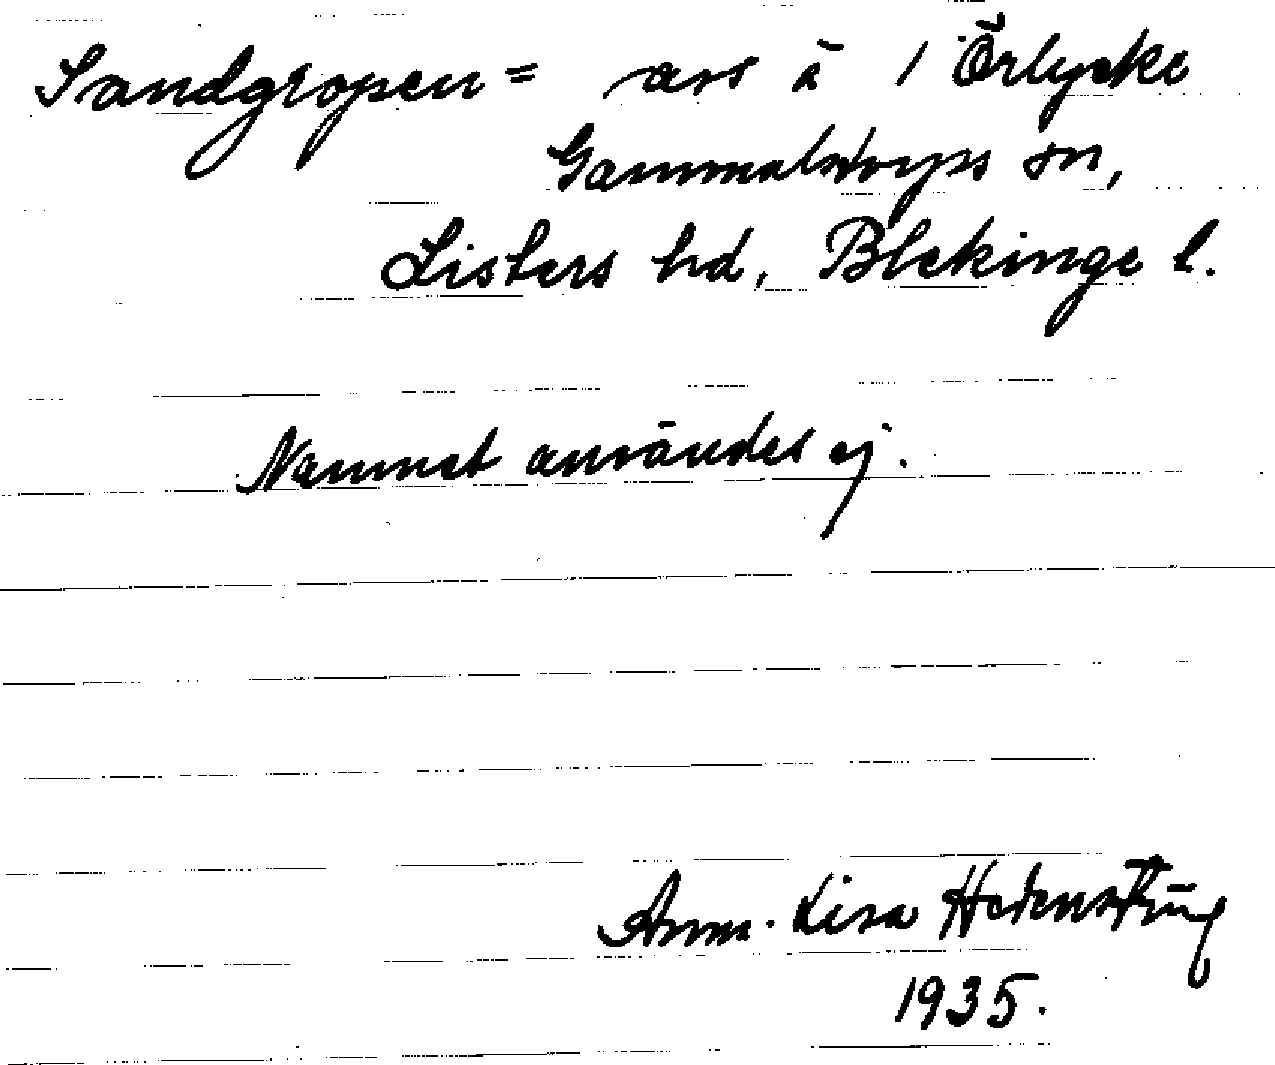 Sandgropen = avs å 1 Örlycke
Gammalstorps sn,
Listers hd, Blekinge l.
Namnet användes ej.
Anna-Lisa Hedenstüng
1935.